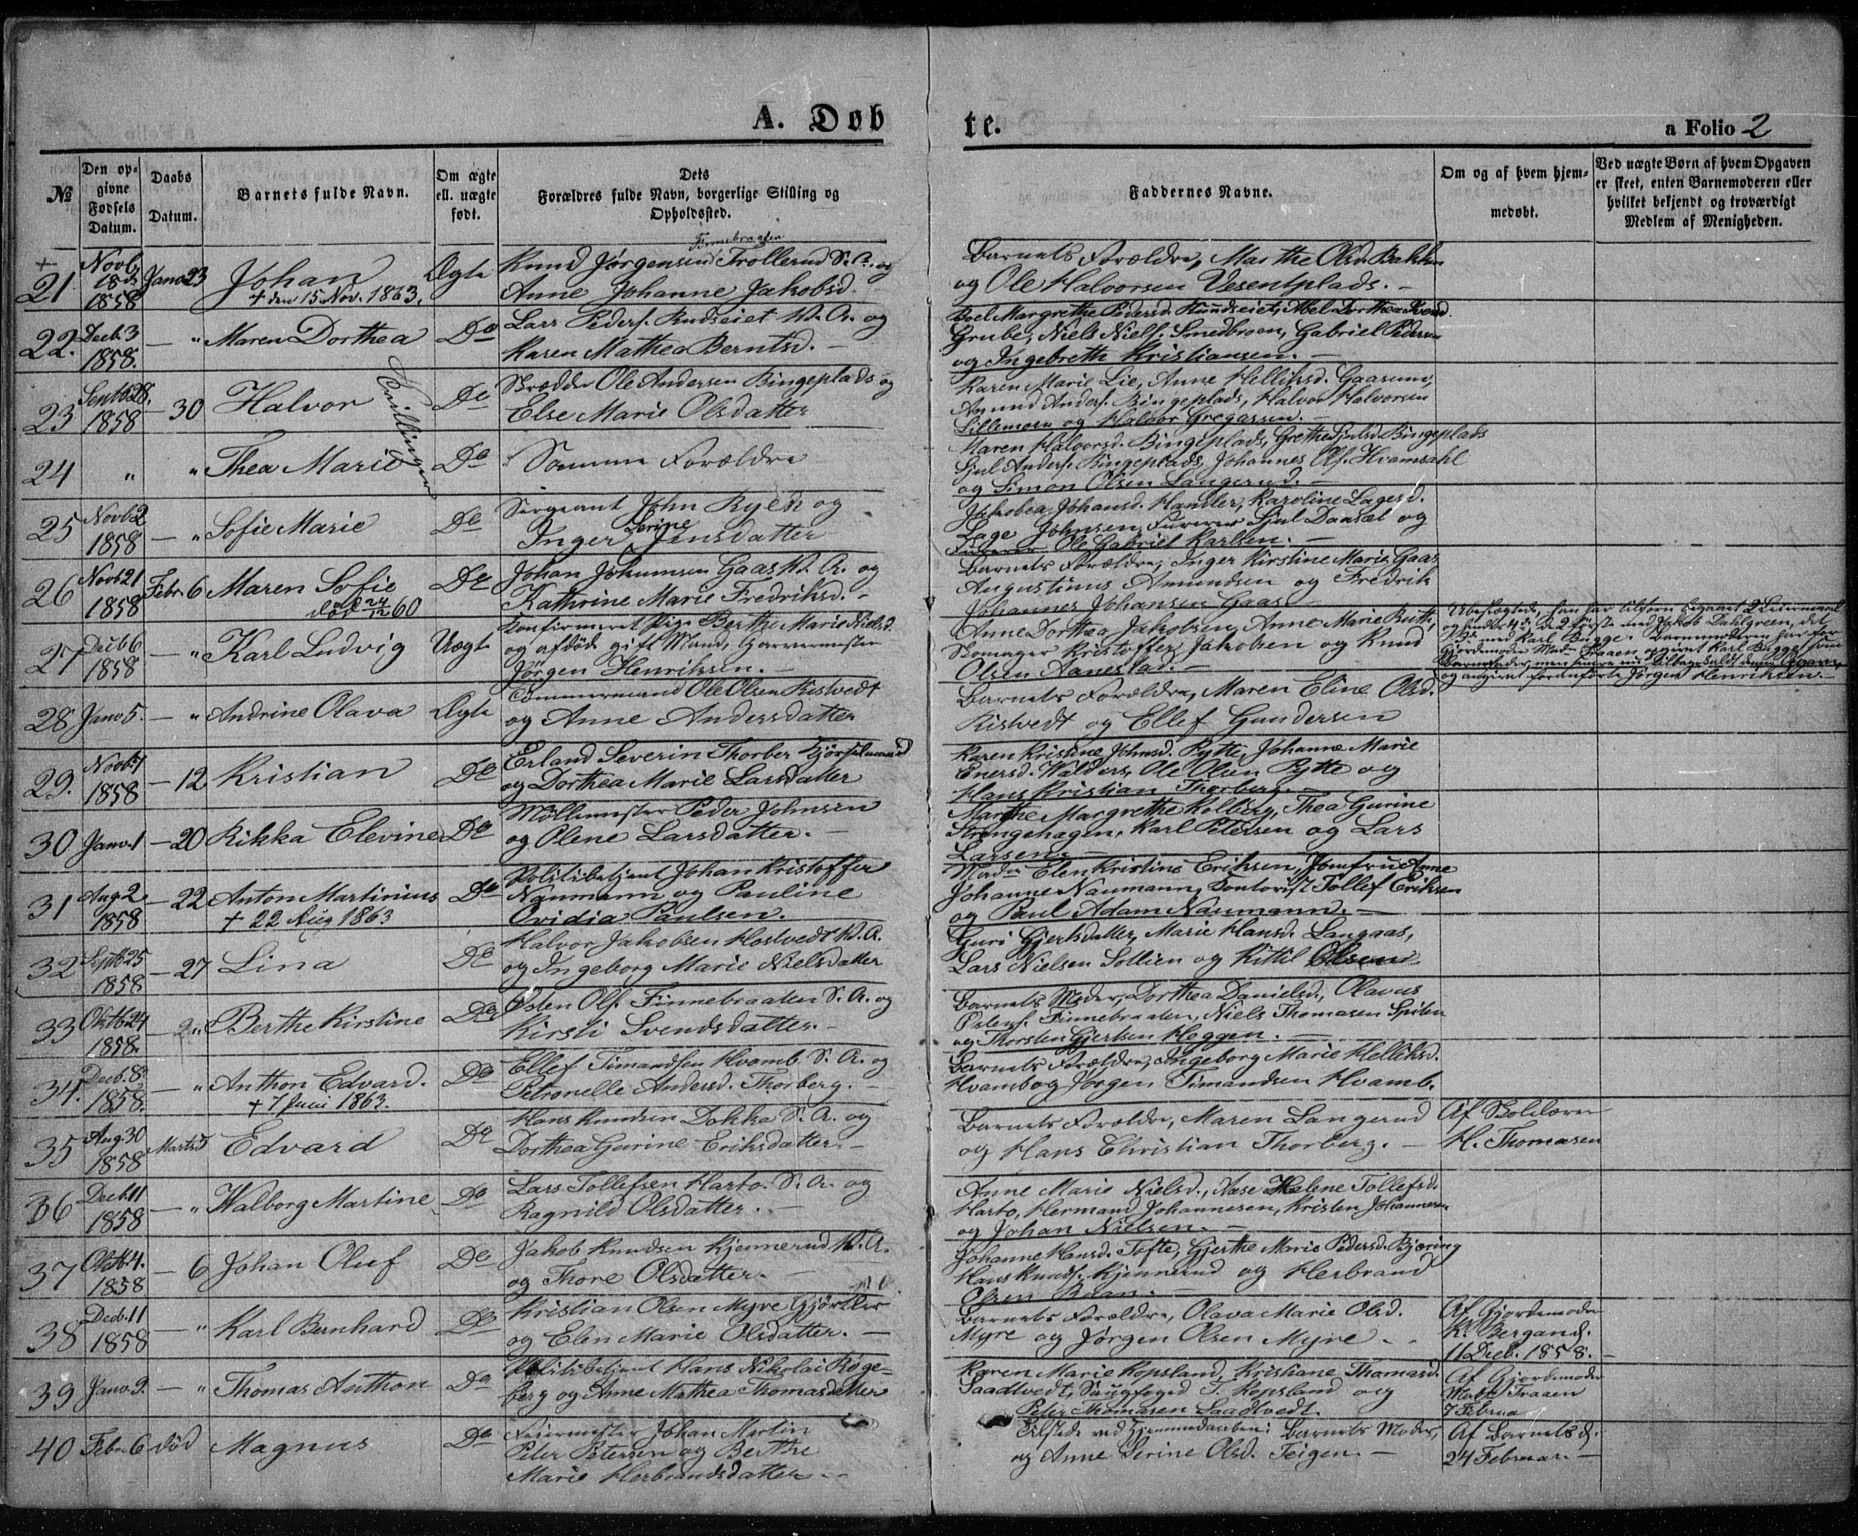 A. Døb
te.
a Folio 2
№
Den op-
givne
Fødsels
Datum.
Daabs
Datum.
Barnets fulde Navn.
Om ægte
ell. uægte
født.
Dets
Forældres fulde Navn, borgerlige Stilling og
Opholdssted.
Faddernes Navne.
Om og af hvem hjem-
medøbt.
Ved uægte Børn af hvem Opgaven
er skeet, enten Barnemoderen eller
hvilket bekjendt og troværdigt
Medlem af Menigheden.
+
21.
Novb.
18
1858
Janv 23
Johan
+ den 15. Nov. 1863.
Ægte
Finnebraaten
Knud Jørgensen Trollerud S. A. og
Anne Johanne Jakobsd.
Barnets Forældre, Marthe Olsd. Bakken
og Ole Halvorsen Vesentplads. –
22.
Decb. 3
1858.
— "
Maren Dorthea
Do
Lars Peders. Rudseiet V. A. og
Karen Mathea Berntsd. –
Boel Margrethe Pedersd. Rundseiet, Abel Dorthea
Grube, Niels Niels. Smedbroen, Gabriel Peders.
og Ingebreth Kristiansen. –
23
Septb 28.
1858
— 30
Halvor
Tvillinger
Do
Skrædder Ole Andersen Bingeplads og
Else Marie Olsdatter
Karen Marie Lie, Anne Helliksd. Gaasum,
Amund Anders. Bingeplads, Halvor Halvorsen
Lillemoen og Halvor Gregersen. –
24
"
"
Thea Marie
Do
Samme Forældre
Maren Halvorsd. Bingeplads, Grethe Sjulsd Bingeplads
Sjul Anders. Bingeplads, Johannes Ols. Hvamsahl
og Simon Olsen Langerud. –
25
Novb 2
1858
— "
Sofie Marie
Do
Sergeant John Ryen og
Serine
Inger Jensdatter
Jakobea Johansd. Handler, Karoline Lagesd.
Lage Johnsen, Furerer Sjul Daasæt og
Furerer Ole Gabriel Karlsen. –
26
Novb 21
1858
Febr. 6
Maren Sofie
død 24/12 60
Do
Johan Johannsen Gaas V. A. og
Kathrine Marie Fredriksd. –
Barnets Forældre, Inger Kirstine Marie Gaas
Augustinus Amundsen og Fredrik
Johannes Johansen Gaas –
27
Decb 6
1858
— "
Karl Ludvig
Uægte
Konfirmeret Pige Berthe Marie Nielsd.
og afdøde gift Mand, Garvermester
Jørgen Henriksen. –
Anne Dorthea Jakobsen, Anne Marie Ruth,
Skomager Kristoffer Jakobsen og Knud
Olsen Aanestad. –
Ubeskegtede, hun har tilforn begaaet 2 Leiermaal
og hendes 4de, de 2 første med Jakob Dahlgreen, det
3de med Karl Bugge. Barnmoderen har for
Gjordemoder Mad. Traaen opgivet Karl Bugge som
Barnefader, men senere
og angivet foranførte Jørgen Henriksen. –
28
Janv 5.
— "
Andrine Olava
Ægte
Tømmermand Ole Olsen Ristvedt
og Anne Andersdatter
Barnets Forældre, Maren Eline Olsd.
Ristvedt og Ellef Gundersen
29.
Novb 7
1858
— 12
Kristian
Do
Erland Severin Thorberg
og Dorthea Marie Larsdatter
Karen Kristine Johnsd. Pytte, Johanne Marie
Enersd. Walders, Ole Olsen Pytte og
Hans Kristian Thorberg. –
30
Janv. 1
— 20
Rikka Elevine
Do
Møllemester Peder Johnsen
og Olene Larsdatter. –
Marthe Margrethe Kolberg, Thea Gurine
Strengehagen, Karl Petersen og Lars
Larsen. –
31
Aug 2
1858
— 22
Anton Martinius
+ 22 Aug 1863
Do
Politibetjent Johan Kristoffer
Naumann og Pauline
Ovidia Paulsen.
Madm. Elen Kristine Eriksen, Jomfrue Anne
Johanne Naumann, Kontorist Tollef Eriksen
og Paul Adam Naumann. –
32
Septb 25
1858
— 27
Lina
Do
Halvor Jakobsen Hostvedt V. A.
og Ingeborg Marie Nielsdatter
Guri Gjertsdatter, Marie Hansd. Langaas,
Lars Nielsen Sollien og Kittil Olsen
33
Oktb 24
1858.
— "
Berthe Kirstine
Do
Østen Ols. Finnebraaten S. A. og
Kirsti Svendsdatter. –
Barnets Moder, Dorthea Danielsd., Olavus
Østens. Finnebraaten, Niels Thomasen Spiten
og Thorsten Gjertsen Heggen. –
34.
Decb. 8
1858.
— "
Anthon Edvard.
+ 7 Juni 1863.
Do
Ellef Timandsen Hvamb. S. A. og
Petronelle Andersd. Thorberg. –
Barnets Forældre, Ingeborg Marie Helliksd.
Hvamb og Jørgen Timandsen Hvamb.
35
Aug. 30
1858
Marts 5
Edvard
Do
Hans Knudsen Dokka S. A. og
Dorthea Gurine Eriksdatter. –
Barnets Forældre, Maren Langerud
og Hans Christian Thorberg. –
Af Skolelærer
H. Thomasen
36
Decb. 11
1858
— "
Walborg Martine
Do
Lars Tollefsen Harto. S. A. og
Ragnild Olsdatter. –
Anne Marie Nielsd., Aase Helene Tollefsd.
Harto, Hermand Johannesen, Kristen Johannesen
og Johan Nielsen. –
37
Oktb 4.
1858
— 6
Johan Oluf
Do
Jakob Knudsen Kjennerud V. A.
og Thore Olsdatter. –
Johanne Hansd. Tofte, Gjerthe Marie Pedersd. Bjøring
Hans Knuds. Kjennerud og Herbrand
Olsen Baan. –
38
Decb. 11
1858
— "
Karl Bernhard
Do
Kristian Olsen Myre Gjørtler
og Elen Marie Olsdatter. –
Barnets Forældre, Olava Marie Olsd.
Myre og Jørgen Olsen Myre –
Af Gjordemoder
K. Bergan
11 Decb. 1858. –
39
Janv. 9.
— "
Thomas Anthon
Do
Politibetjent Hans Nikolai Røge-
berg og Anne Mathea Thomasdatter
Karen Marie Kopsland, Kristiane Thomasd.
Saadtvedt, Saugfoged T. Kopsland og
Peter Thomasen Saadtvedt.
Af Gjordemoder
Madm. Traaen
7 Februar
40
Febr. 6
død
Magnus
Do
Feiermester Johan Martin
Peter Petersen og Berthe
Marie Herbrandsdatter. –
Tilstede ved Hjemmedaaben: Barnets Moder,
og Anne Serine Olsd. Teigen. –
Af Barnets
24 Februar. –